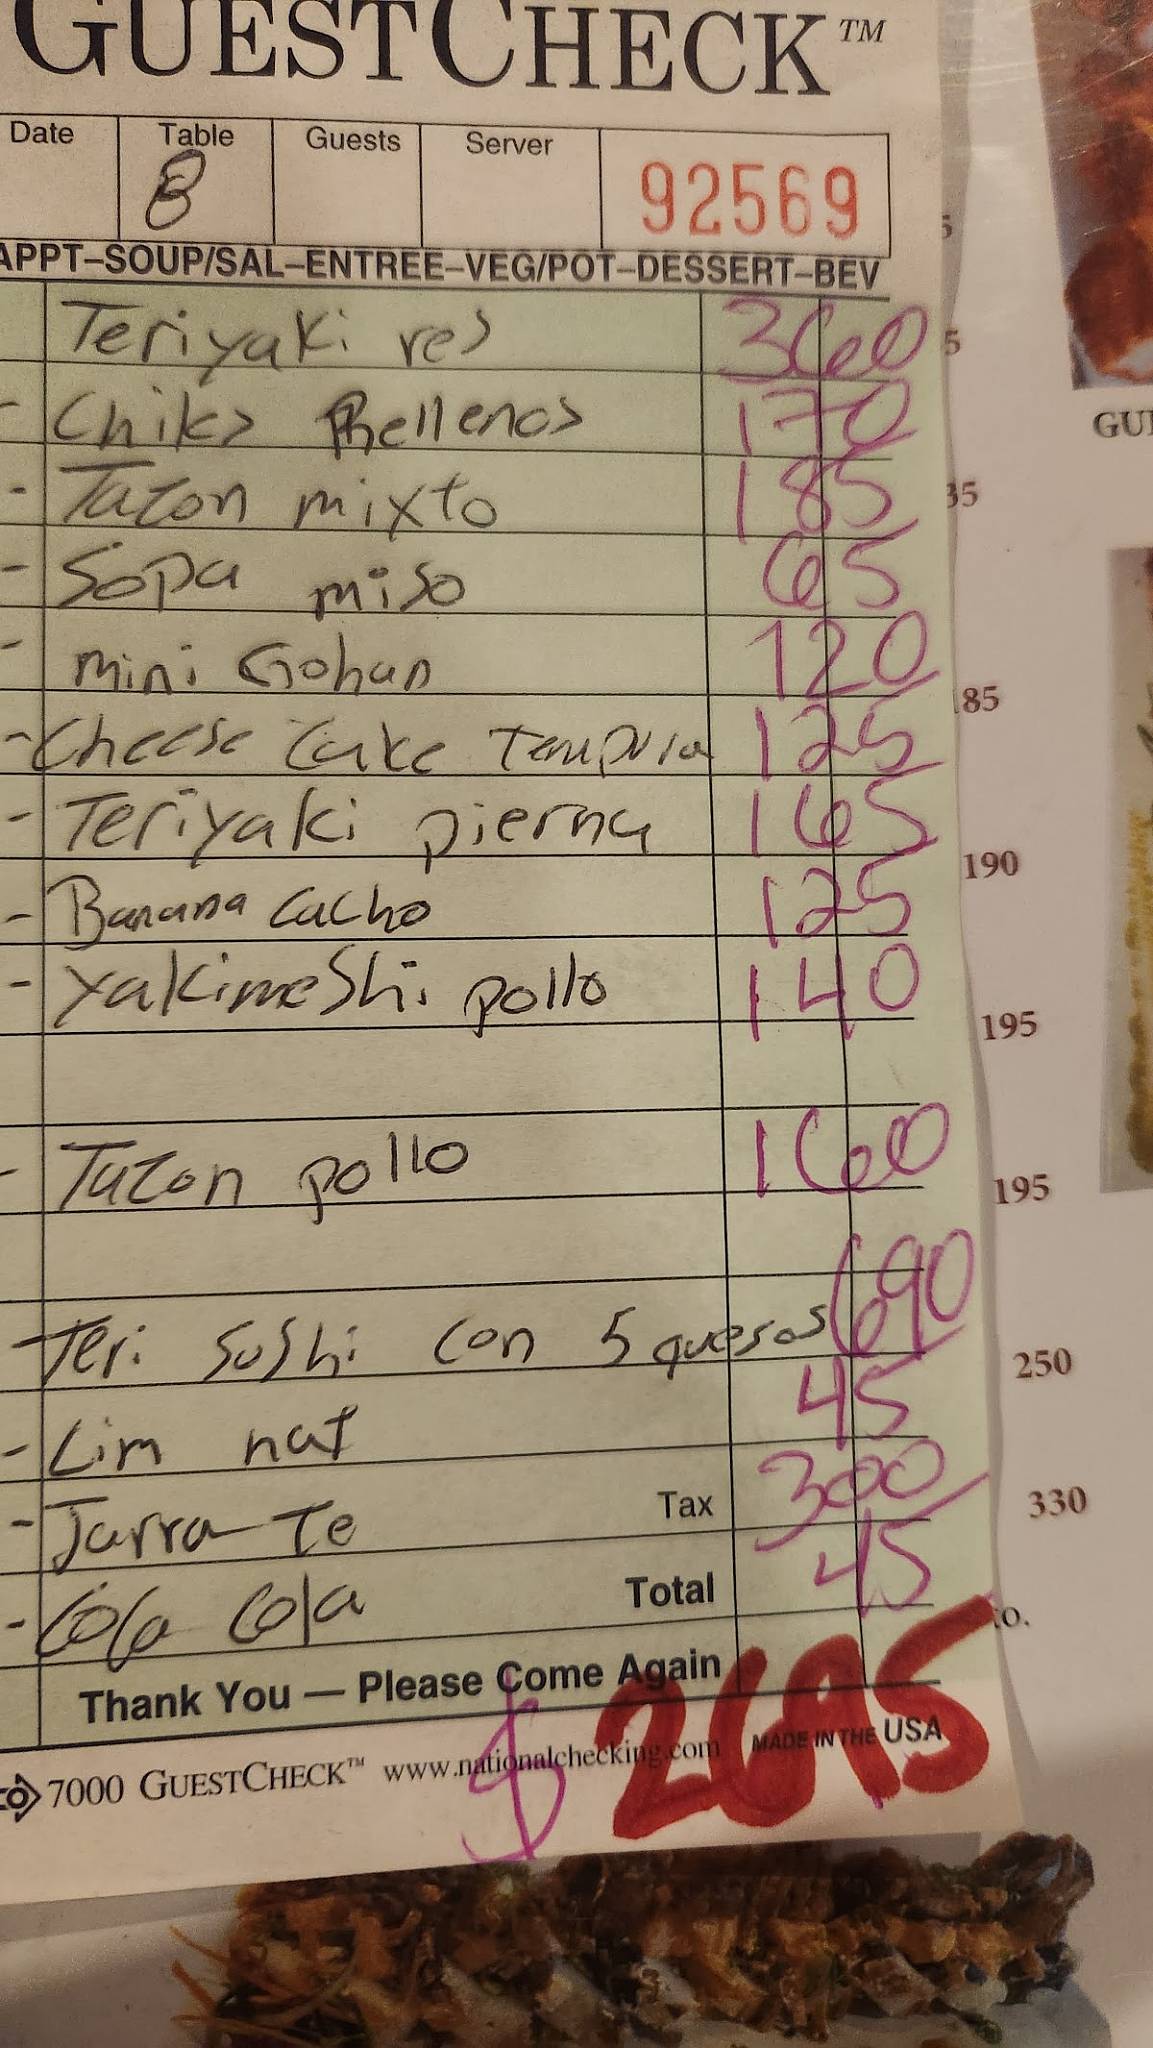 GUESTCHECK™
Date Table Guests Server
8 92569
APPT–SOUP/SAL–ENTREE–VEG/POT–DESSERT–BEV
Teriyaki res 360
- Chiks Rellenos 170
- Tazon mixto 185
- Sopa miso 65
- mini Gohan 120
- Cheese Cake Tempura 125
- Teriyaki pierna 165
- Banana Cacho 125
- Yakimeshi pollo 140
- Tazon pollo 160
- Teri Sushi Con 5 quesos 690
- Lim nat 45
- Jarra Te Tax 300
- Cola Cola Total 45
Thank You — Please Come Again
$ 2695
7000 GUESTCHECK™ www.nationalchecking.com MADE IN THE USA
5
GUI
35
185
190
195
195
250
330